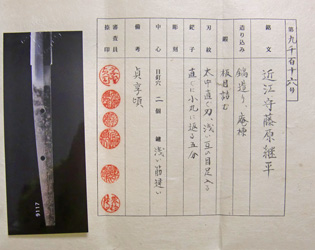 第九千百十六号
銘文 近江守藤原継平
造り込み 鎬造り、庵棟
鍛 板目詰む
刃紋 太中直ぐ刃、浅い互の目足入る
鋩子 直ぐに小丸に返る五分
彫刻
中心 目釘穴 二個 鑢 浅い筋違い
備考 貞享頃
審査員 捺印
9117